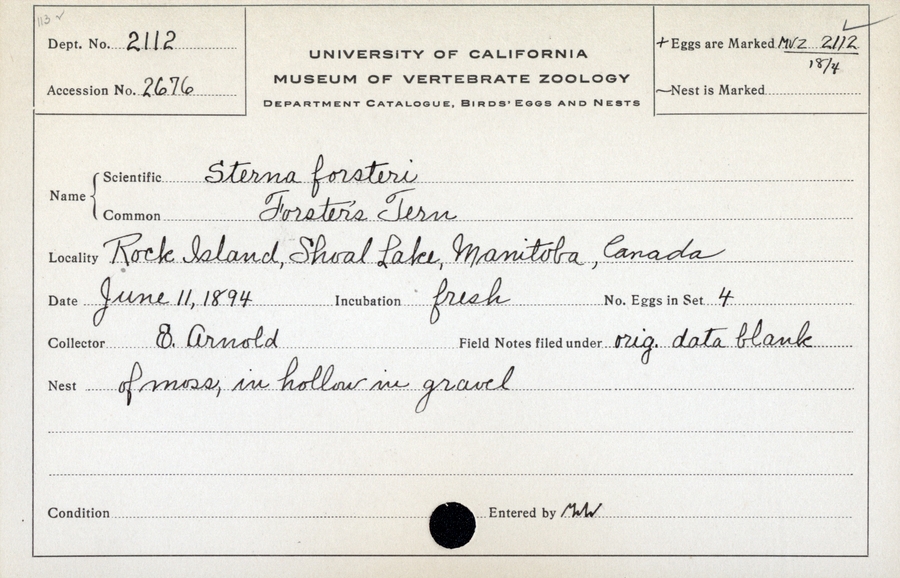 113 ✓
Dept. No. 2112
Accession No. 2676
UNIVERSITY OF CALIFORNIA
MUSEUM OF VERTEBRATE ZOOLOGY
DEPARTMENT CATALOGUE, BIRDS' EGGS AND NESTS
+ Eggs are Marked MVZ 2112
18/4
~Nest is Marked
Name { Scientific Sterna forsteri
Common Forster's Tern
Locality Rock Island, Shoal Lake, Manitoba, Canada
Date June 11, 1894 Incubation fresh No. Eggs in Set 4
Collector E. Arnold Field Notes filed under orig. data blank
Nest of moss, in hollow in gravel
Condition Entered by